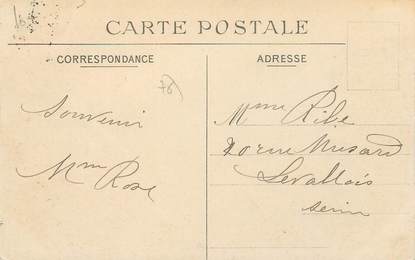 CARTE POSTALE
CORRESPONDANCE
ADRESSE
78
Souvenir
Mme Rose
Mme Ribe
20 rue Musard
Levallois
Seine